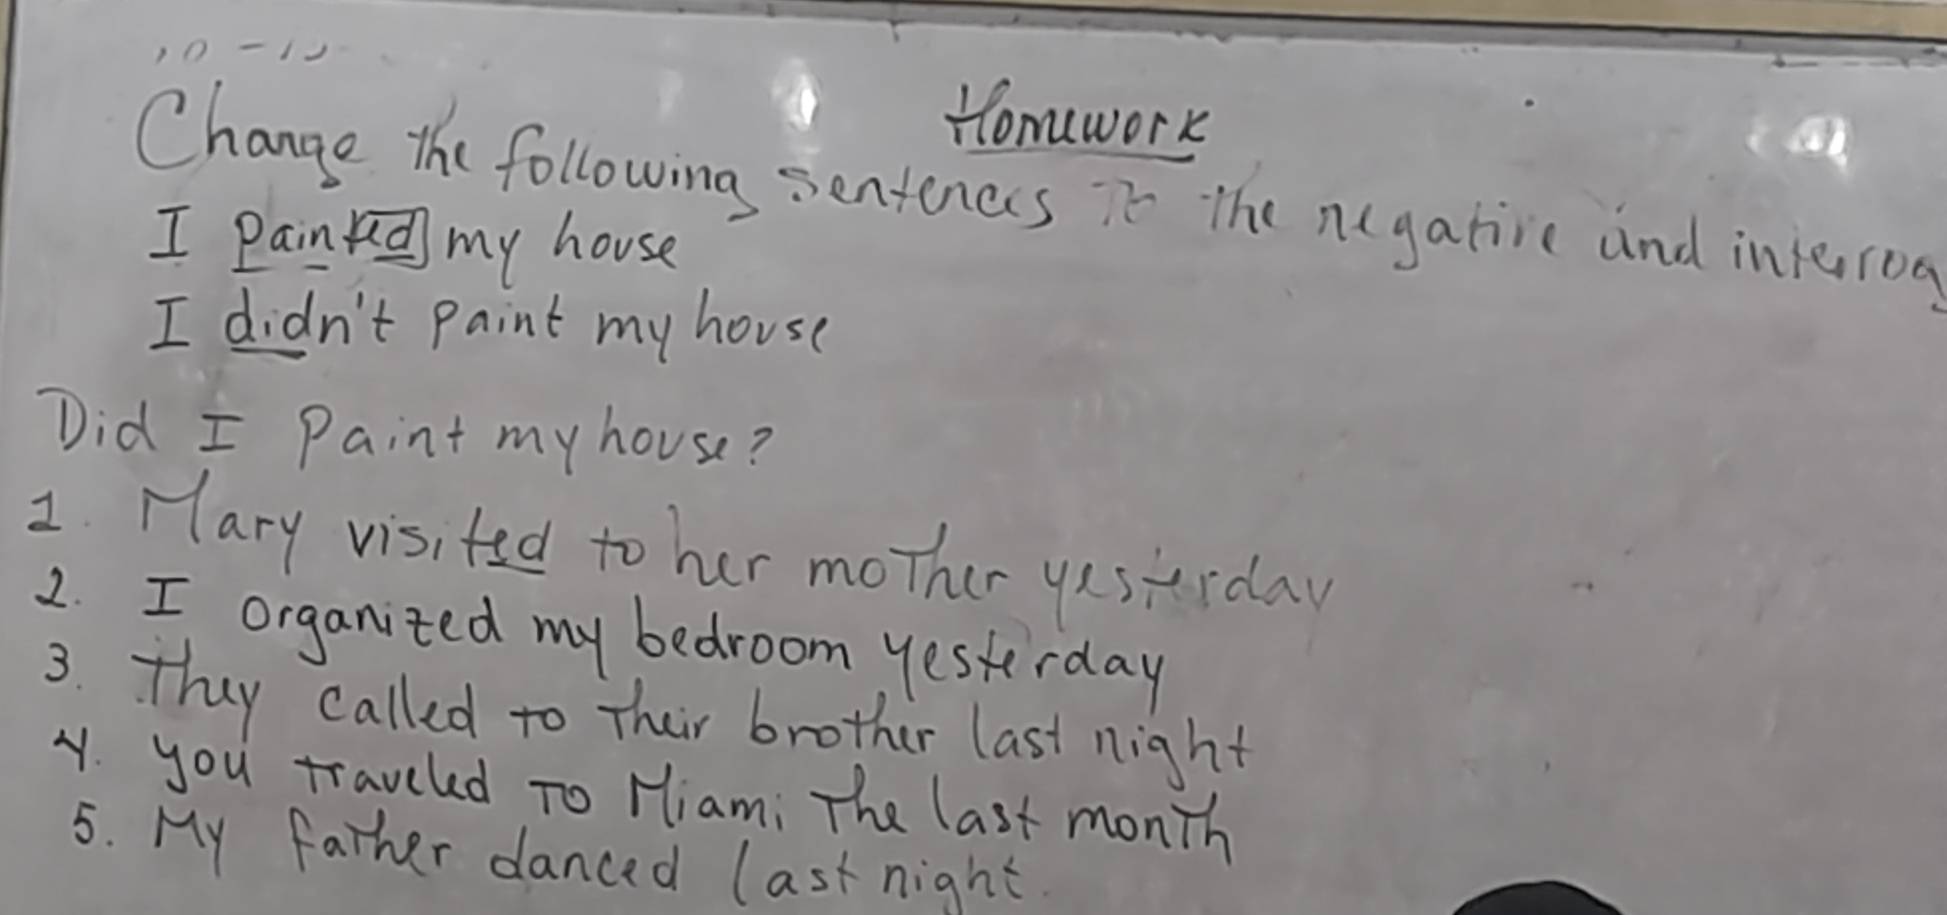 Homework
Change the following sentences to the negative and interrog
I painted my house
I didn't paint my house
Did I paint my house?
1. Mary visited to her mother yesterday
2. I organized my bedroom yesterday
3. They called to their brother last night
4. you traveled To Miami The last month
5. My father danced last night.